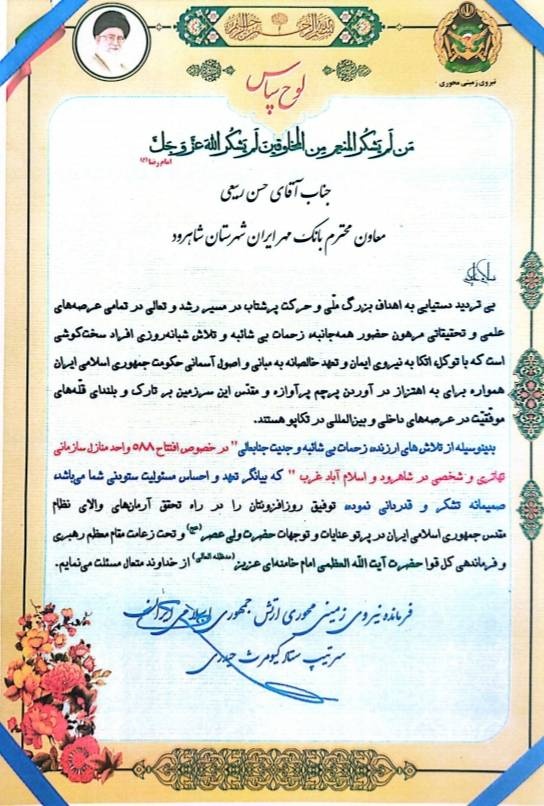 بسم الله الرحمن الرحیم
نیروی زمینی محوری
لوح سپاس
مَن لَم یَشکُرِ المُنعِمَ مِنَ المَخلوقینَ لَم یَشکُرِ اللهَ عَزَّ وَ جَلَّ
امام رضا (ع)
جناب آقای حسن ربیعی
معاون محترم بانک مهر ایران شهرستان شاهرود
سلام علیکم
بی تردید دستیابی به اهداف بزرگ ملّی و حرکت پرشتاب در مسیر رشد و تعالی در تمامی عرصه‌های
علمی و تحقیقاتی مرهون حضور همه‌جانبه، زحمات بی شائبه و تلاش شبانه‌روزی افراد سخت‌کوشی
است که با توکل، اتکا به نیروی ایمان و تعهد خالصانه به مبانی و اصول آسمانی حکومت جمهوری اسلامی ایران
همواره برای به اهتزاز در آوردن پرچم پرآوازه و مقدّس این سرزمین بر تارک و بلندای قلّه‌های
موفقیّت در عرصه‌های داخلی و بین‌المللی در تکاپو هستند.
بدینوسیله از تلاش های ارزنده، زحمات بی شائبه و جدیت جنابعالی" در خصوص افتتاح ۵۸۸ واحد منازل سازمانی
تهاتری و شخصی در شاهرود و اسلام آباد غرب " که بیانگر تعهد و احساس مسئولیت ستودنی شما می‌باشد،
صمیمانه تشکر و قدردانی نموده، توفیق روزافزونتان را در راه تحقق آرمان‌های والای نظام
مقدس جمهوری اسلامی ایران در پرتو عنایات و توجهات حضرت ولی عصر (عج) و تحت زعامت مقام معظم رهبری
و فرماندهی کل قوا حضرت آیت الله العظمی امام خامنه‌ای عزیز (مدظله العالی) از خداوند متعال مسئلت می‌نمایم.
فرمانده نیروی زمینی محوری ارتش جمهوری اسلامی ایران
سرتیپ ستاد کیومرث حیدری